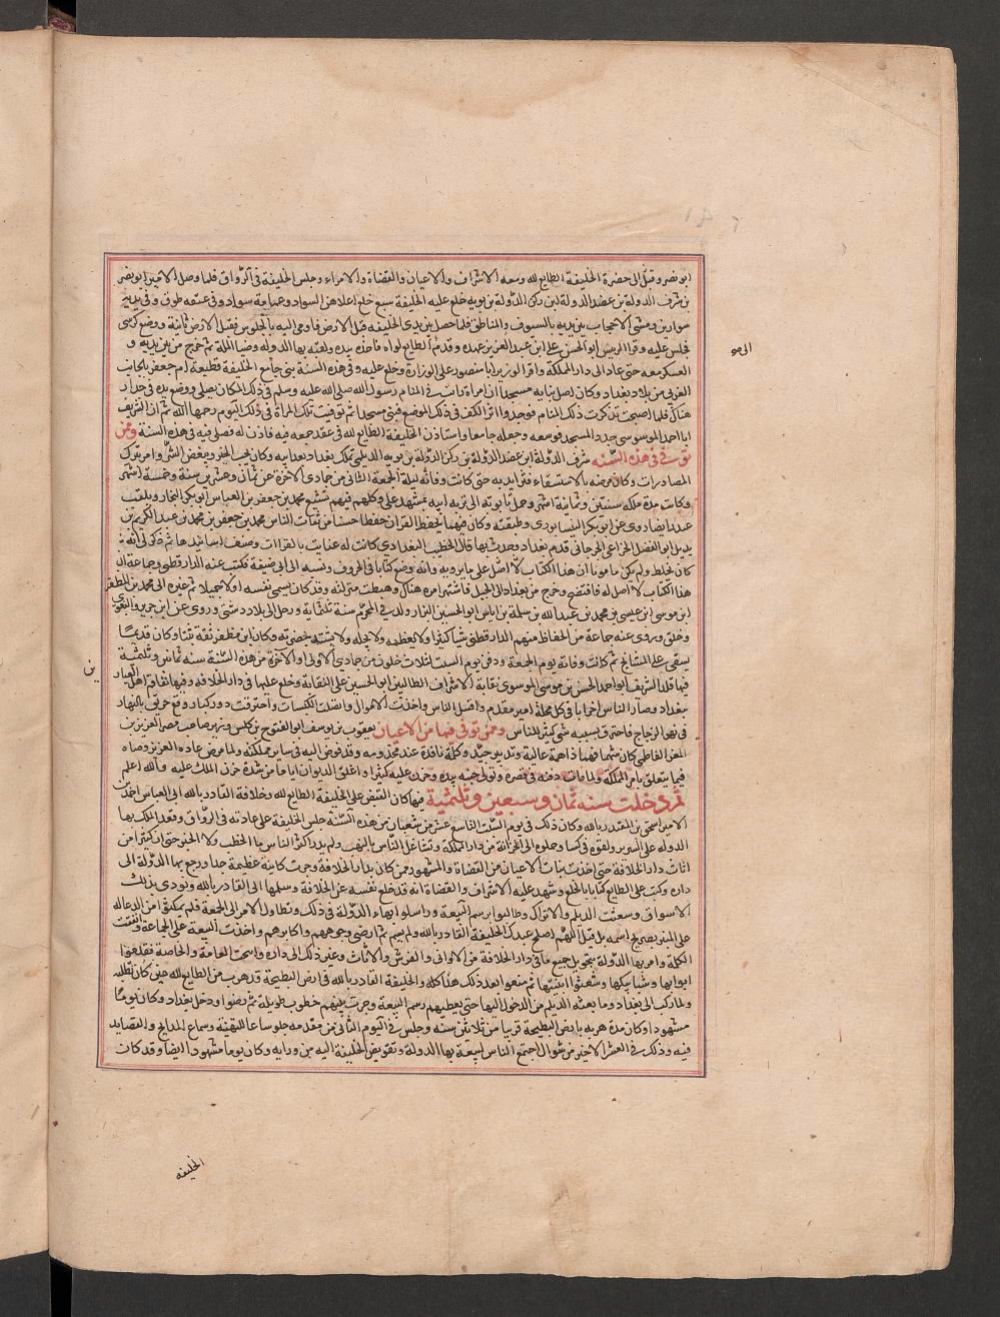 ابو نصر وقبل الى حضرة الخليفة الطايع لله ومعه الاشراف والاعيان والقضاة والامراء وجلس الخليفة فى الرواق فلما وصل الامير ابو نصر
بن شرف الدولة بن عضد الدولة بن ركن الدولة بن بويه خلع عليه الخليفة سبع خلع اعلاهن السواد وعمامة سوداء وفى عنقه طوق وفى يديه
سوارين ومشى الاحجاب بين يديه بالسيوف والمناطق فلما حصل بين يدى الخليفه قبل الارض فاومى اليه بالجلوس فقبل الارض ثانية ووضع كرسى
فجلس عليه وقرا الرييس ابو الحسن على ابن عبد العزيز عهده وقدم الطايع لواه فاخذه بيده ولقبه بها الدوله وضيا الملة ثم خرج من بين يديه و
العسكر معه حتى عاد الى دار المملكة واقر الوزير ابا منصور على الوزارة وخلع عليه وفى هذه السنة بنى جامع الخليفة قطيعة ام جعفر بالجانب
الغربى من بلاد بغداد وكان اصل بنايه مسجدا ان امراة رات فى المنام رسول الله صلى الله عليه وسلم فى ذلك المكان يصلى ووضع يده فى جدار
هناك فلما اصبحت تذكرت ذلك المنام فوجدوا اثر الكف فى ذلك الموضع فبنى مسجدا ثم توفيت تلك المراة فى ذلك اليوم رحمها الله ثم ان الشريف
ابا احمد الموسوى جدد المسجد فوسعه وجعله جامعا واستاذن الخليفة الطايع لله فى عقد جمعه فيه فاذن له فصلى فيه فى هذه السنة وممن
توفى فى هذه السنه شرف الدولة ابن عضد الدولة بن ركن الدولة بن بويه الديلمى تملك بغداد بعد ابيه وكان يحب الخير ويبغض الشر وامر بترك
المصادرات وكان مرضه بالاستسقاء فتزايد به حتى كانت وفاته ليلة الجمعة الثانى من جمادى الاخرة عن ثمان وعشرين سنة وخمسة اشهر
وكانت مدة ملكه سنتين وثمانية اشهر وحمل تابوته الى تربه ابيه بمشهد على وكلهم فيهم تشيع محمد بن جعفر بن العباس ابو بكر النجار ويلقب
غندر ايضا روى عن ابو بكر النيسابورى وطبقته وكان فهما يحفظ القران حفظا حسنا من ثقات الناس محمد بن جعفر بن محمد بن عبد الكريم بن
بديل ابو الفضل الخزاعى الجرجانى قدم بغداد وحدث بها قال الخطيب البغدادى كانت له عناية بالقراات وصنف اسانيدها ثم ذكر لى انه
كان يخلط ولم يكن مامونا ان هذا الكتاب لا اصل على ما يرويه وانه وضع كتابا فى الحروف ونسبه الى ابى حنيفة فكتب عنه الدارقطنى وجماعة ان
هذا الكتاب لا اصل له فافتضح وخرج من بغداد الى الجبل فاشتهر امره هناك وهبطت منزلته وقد كان يسمى نفسه اولا جميلا ثم غيره الى محمد بن المظفر
ابن موسى ابن عيسى بو محمد بن عبد الله بن سلمة بن اياس ابو الحسين البزار ولد فى المحرم سنة ثلثماية ورحل الى بلاد دمشق وروى عن ابن جرير والبغوى
وخلق وروى عنه جماعة من الحفاظ منهم الدارقطنى شيا كثيرا ولا يعظمه ولا يجله ولا يستند بحضرته وكان ابن مظفر ثقة ثبتا وكان قديما
ينتقى على المشايخ ثم كانت وفاته يوم الجمعة ودفن يوم السبت لثلاث خلون من جمادى الاولى او الاخرة من هذه السنة سنه ثمانين وثلثمية
فيها قلد الشريف ابو احمد الحسن بن موسى الموسوى نقابة الاشراف الطالبين ابو الحسين على النقابة وخلع عليها فى دار الخلافه وفيها تفاقم اهل العيار
بغداد وصار الناس احزابا فى كل محلة امير مقدم واقتتل الناس واخذت الاموال واتصلت الكبسات واحترقت دور كبار ووقع حريق بالنهار
فى نهر الدجاج فاحترق بسببه شى كثير للناس وممن توفى فيها من الاعيان يعقوب بن يوسف ابو الفتوح بن كلس وزير صاحب مصر العزيز بن
المعز الفاطمى كان شهما فهما ذا همة عالية وتدبير جيد وكلمة نافذة عند مخدومه وقد فوض اليه فى ساير مملكته ولما مرض عاده العزيز ووصاه
فيما يتعلق بامر المملكة ولما مات دفنه فى قصره وتولى دفنه بيده وحزن عليه كثيرا واغلق الديوان اياما من شدة حزن الملك عليه والله اعلم
ثم دخلت سنه ثمان وسبعين وثلثمية فيها كان القبض على الخليفة الطايع لله وخلافة القادر بالله ابى العباس احمد بن
الامير اسحق بن المقتدر بالله وكان ذلك فى يوم السبت التاسع عشر من شعبان من هذه السنة جلس الخليفة على عادته فى الرواق وقعد الملك بها
الدوله على السرير ولفوه فى كسا وحملوه الى الخزانة من دار المملكة وتشاغل الناس بالنهب ولم يدر اكثر الناس ما الخطب ولا الخبر حتى ان كثيرا من
اثاث دار الخلافة حتى اخذت بنات الاعيان من القضاة والمشهود وممن كان بدار الخلافة وجرت كاينة عظيمة جدا ورجع بها الدولة الى
داره وكتب على الطايع كتابا بالخلع وشهد عليه الاشراف والقضاة انه قد خلع نفسه عن الخلافة وسلمها الى القادر بالله ونودى بذلك
الاسواق وسعت الديلم والاتراك وطالبوا برسم البيعة وراسلوا بهاء الدولة فى ذلك وتطاول الامر الى الجمعة فلم يمكنوا من الدعا له
على المنبر بصريح اسمه بل قبل اللهم اصلح عبدك الخليفة القادر بالله ولم يسم ثم ارضى وجوههم واكابرهم واخذت البيعة على الجماعة واتفقت
الكلمة وامر بها الدولة بتحويل جميع ما فى دار الخلافة من الاوانى والفرش والاثاث وغير ذلك الى داره وابيحت للعامة والخاصة فقلعوا
ابوابها وشبابيكها وشعثوا ابنيتها ثم منعوا بعد ذلك هذا كله والخليفة القادر بالله فى ارض البطيحة قد هرب من الطايع لله حين كان تطلبه
ولما ركب الى بغداد وما بعثه الديلم من الدخول اليها حتى يعطيهم رسم البيعة وجرت بينهم خطوب طويلة ثم رضوا ودخل بغداد وكان يوما
مشهودا وكان مدة هربه بارض البطيحة قريبا من ثلاثين سنه وجلس فى اليوم الثانى من مقدمه جلوسا عاما للتهنية وسماع المدايح والقصايد
فيه وذلك فى العشر الاخير من شوال اجتمع الناس لبيعة بها الدولة وتفويض الخليفة اليه من ورايه وكان يوما مشهودا ايضا وقد كان
الخليفه